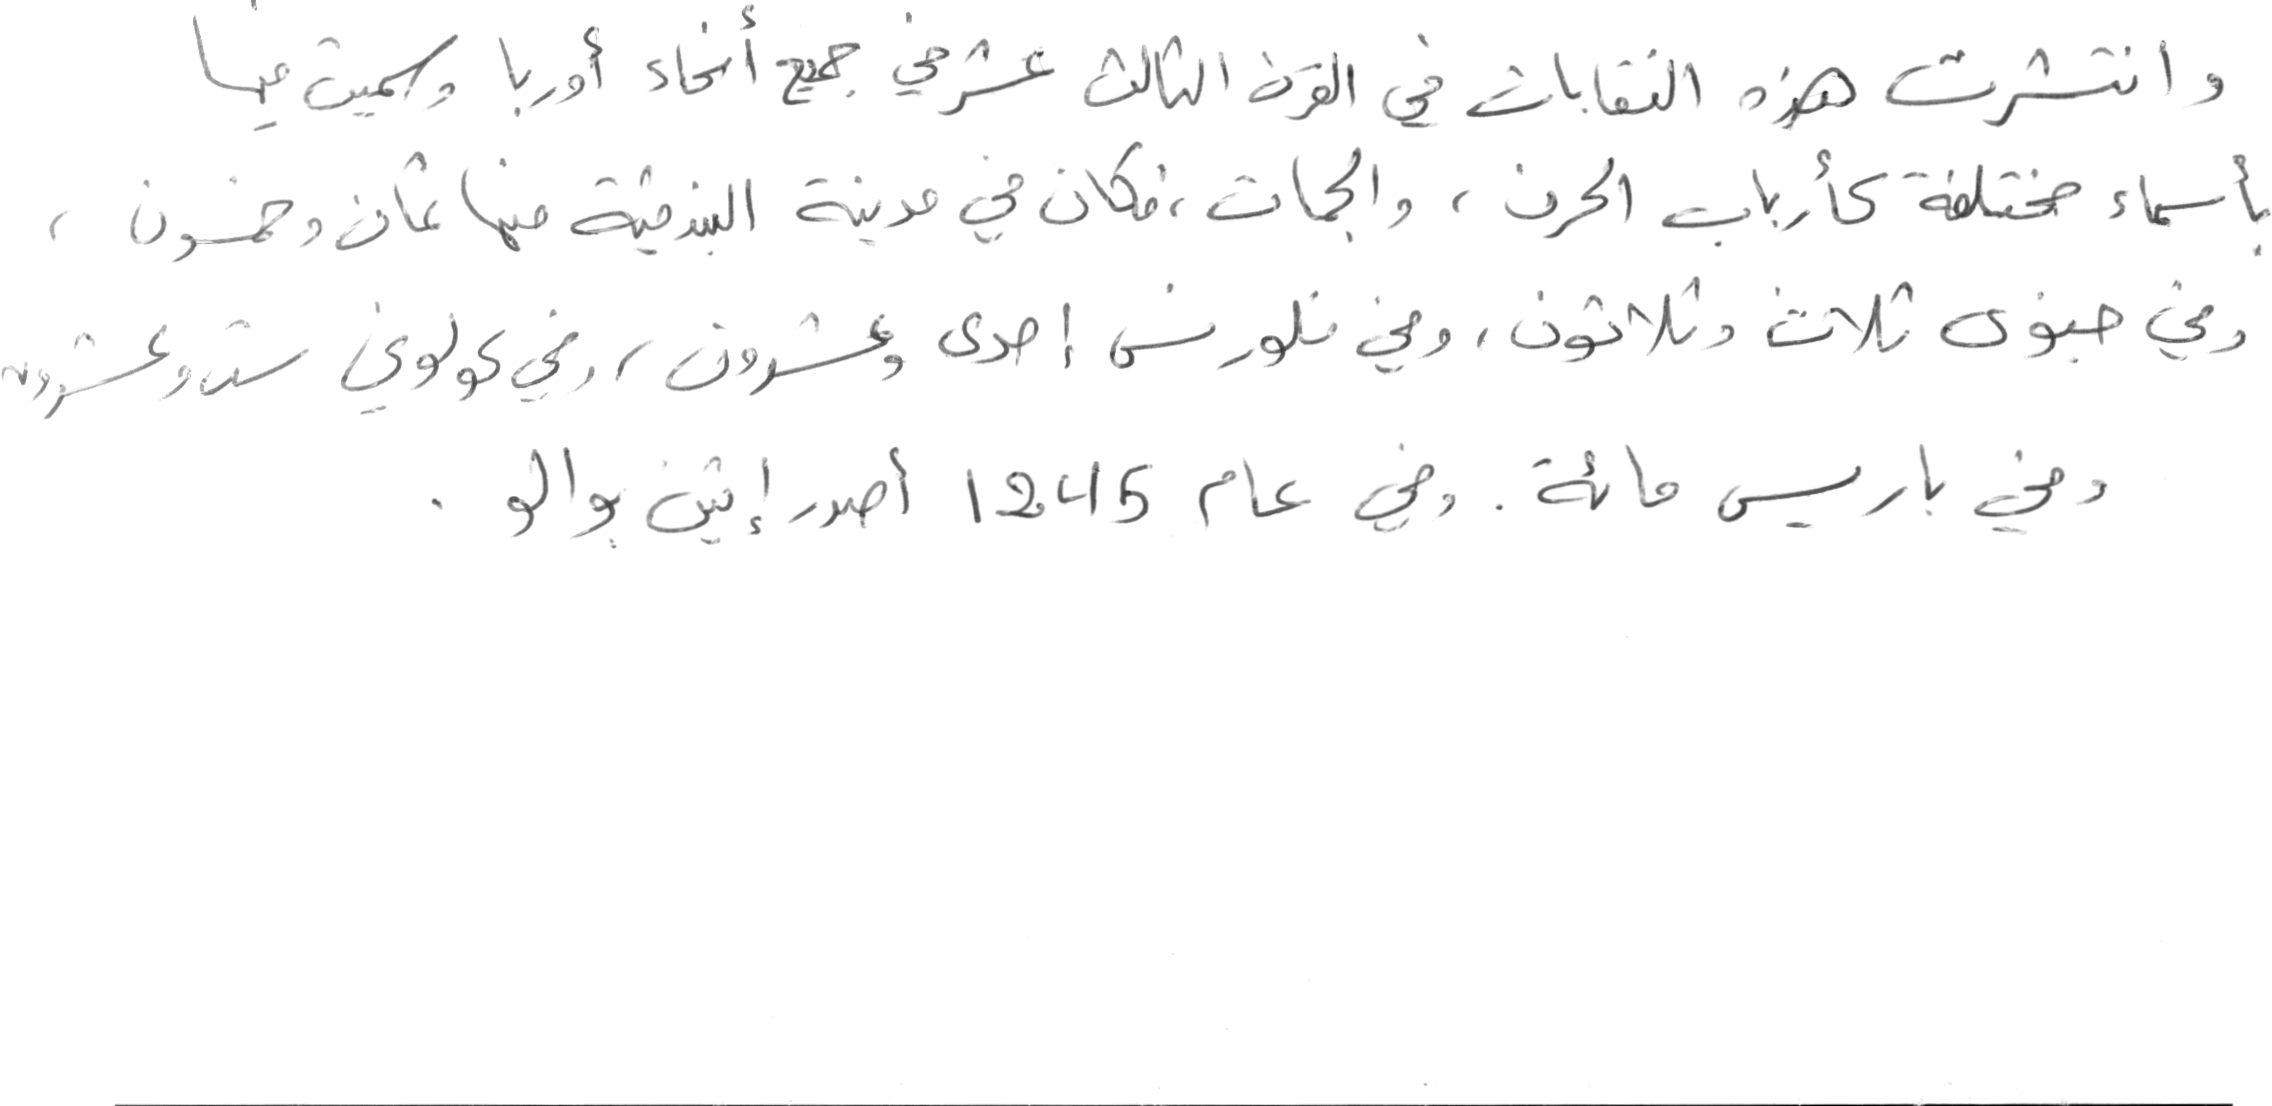 وانتشرت هذه النقابات في القرن الثالث عشر في جميع أنحاء أوربا وسميت فيها
بأسماء مختلفة كأرباب الحرف ، والجمات ، فكان في مدينة البندقية منها ثمان وخمسون ،
وفي جنوى ثلاث وثلاثون ، وفي فلورنس إحدى وعشرون ، وفي كولوني ست وعشرون
وفي باريس مائة . وفي عام 1245 أصدر إتين بوالو .